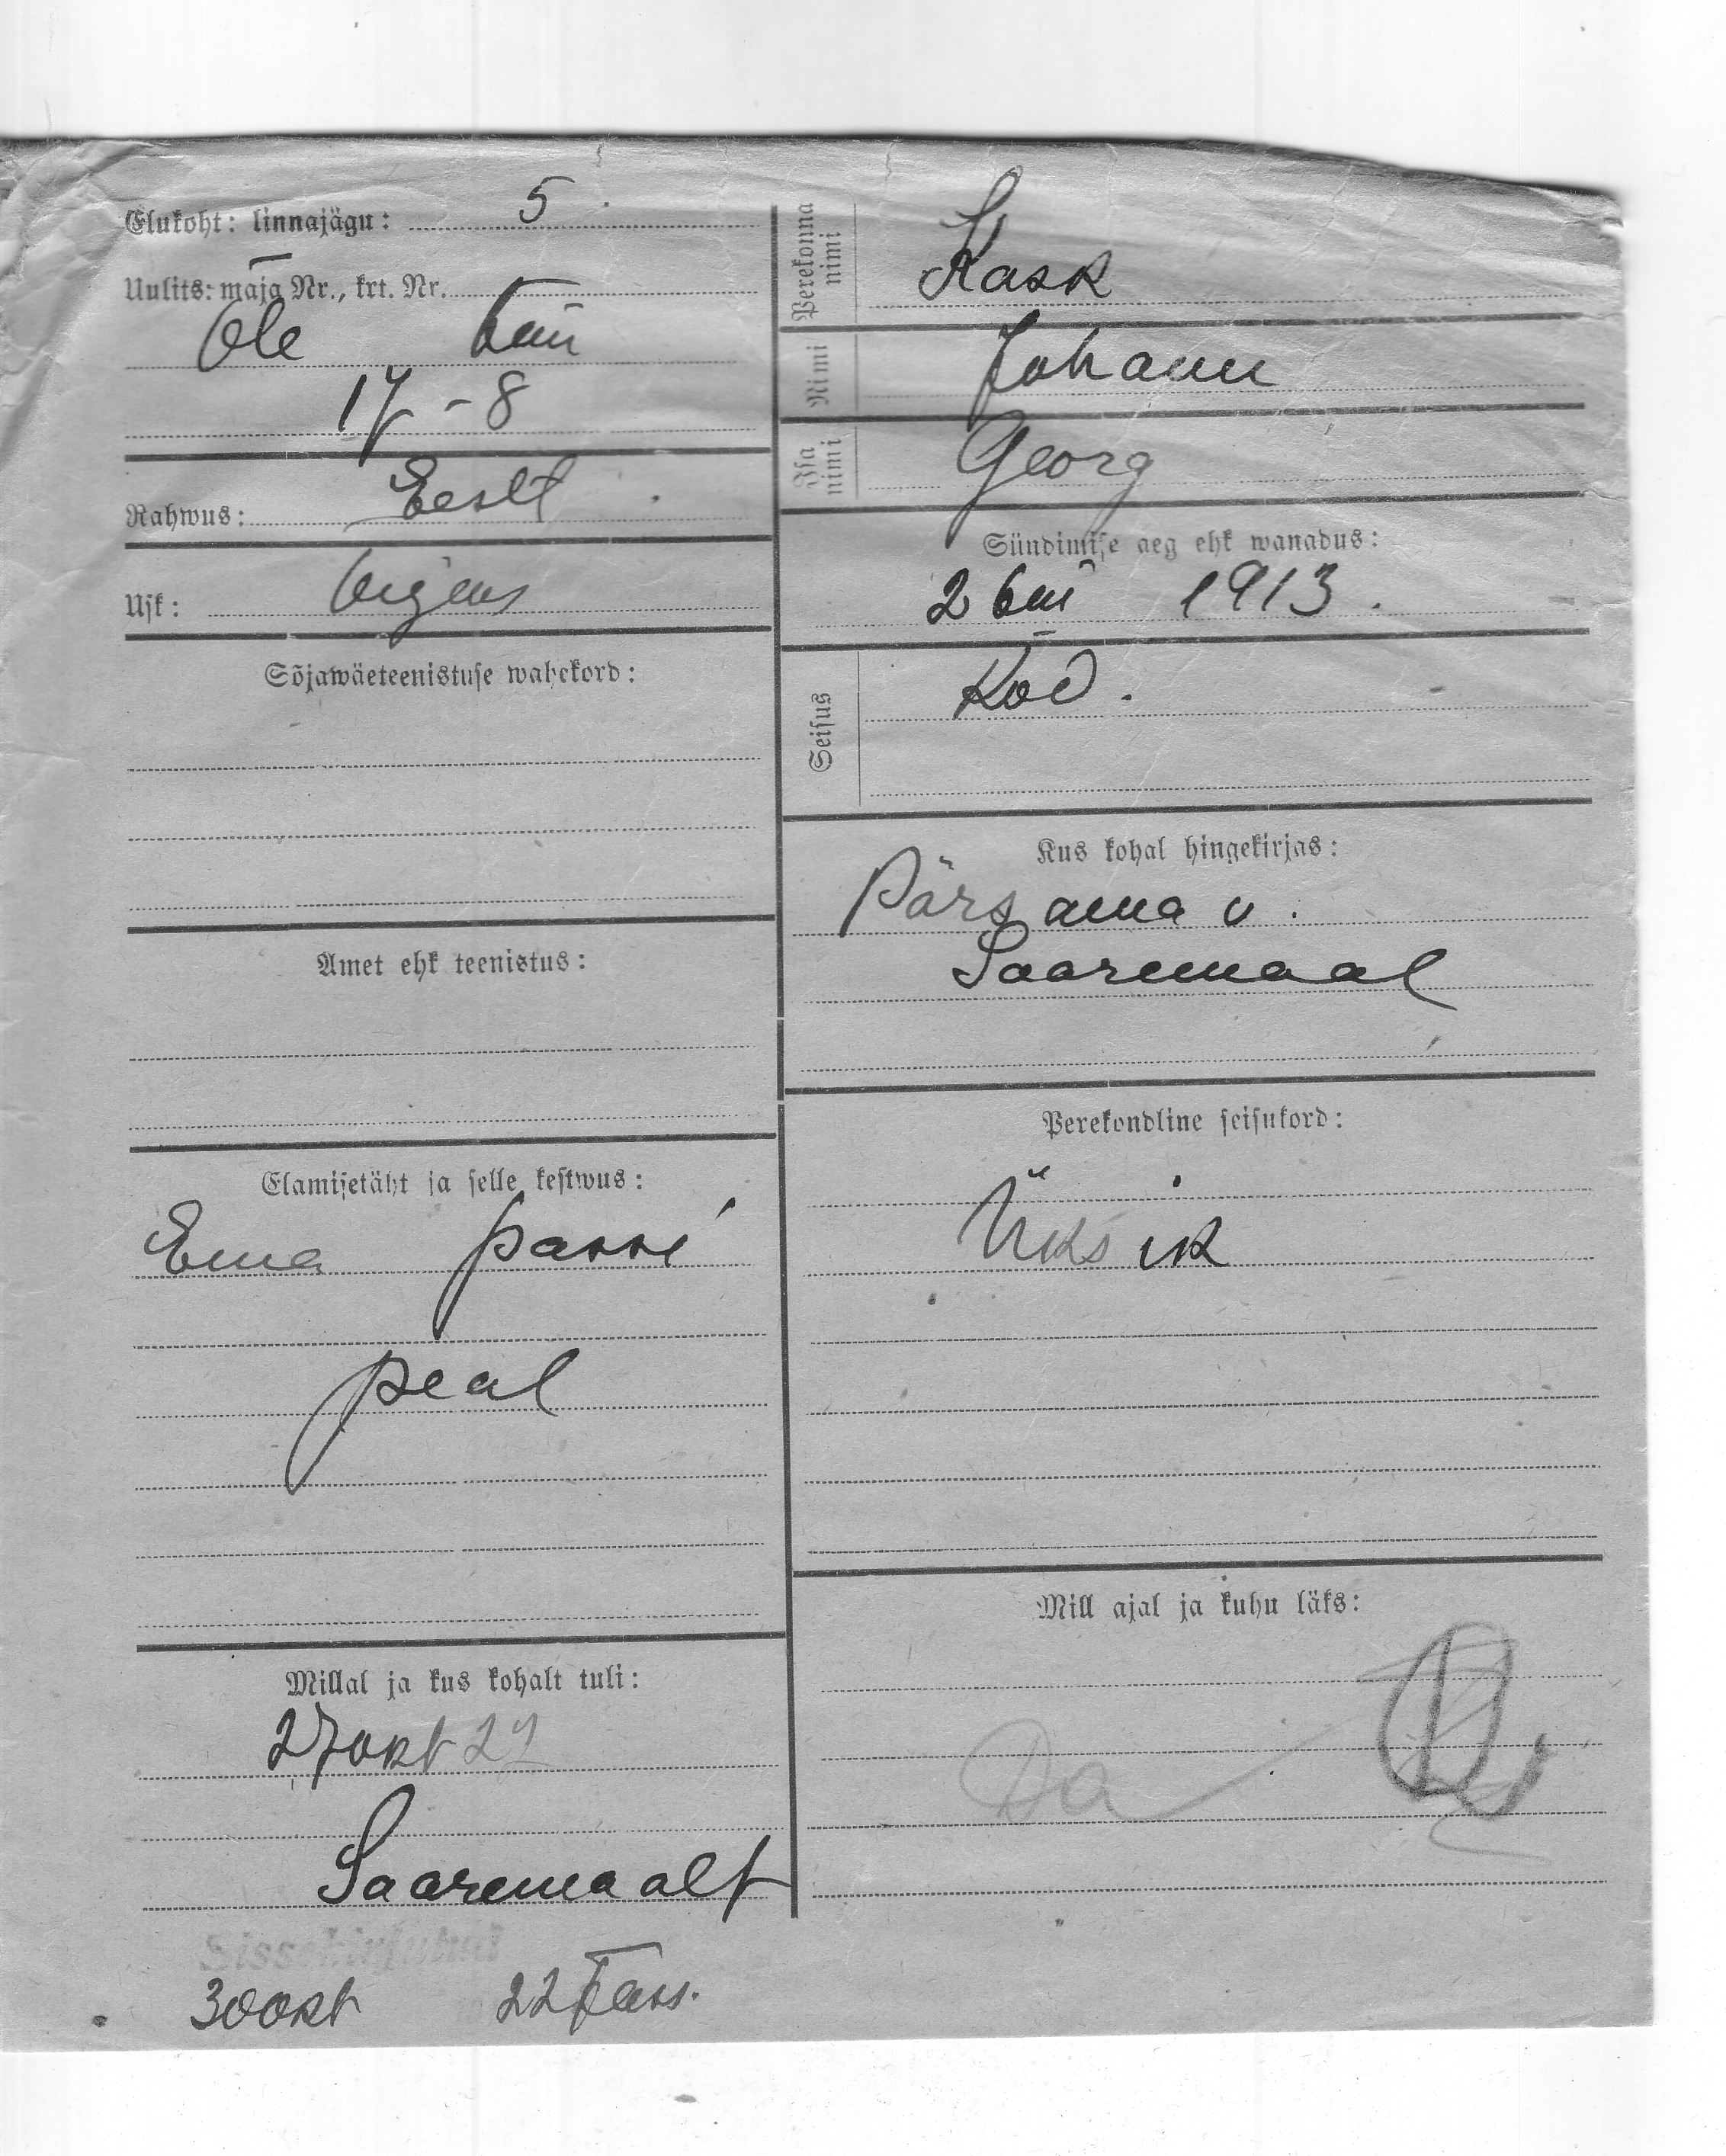 Elukoht: linnajägu: 5
Uulits: maja Nr., krt. Nr.
Ole
17-8
Rahwus: Eesti
Usk:
Sõjawäeteenistuse wahekord:
Amet ehk teenistus:
Elamisetäht ja selle kestwus:
Ema passi
peal
Millal ja kus kohalt tuli:
27 okt 22
Saaremaalt
Sissekirjutud
30 okt 22
Perekonna nimi Kask
Nimi Johann
Isa nimi Georg
Sündimise aeg ehk wanadus:
2 1913.
Seisus Kod.
Kus kohal hingekirjas:
Pärsama v.
Saaremaal
Perekondline seisukord:
Üksik
Mill ajal ja kuhu läks: